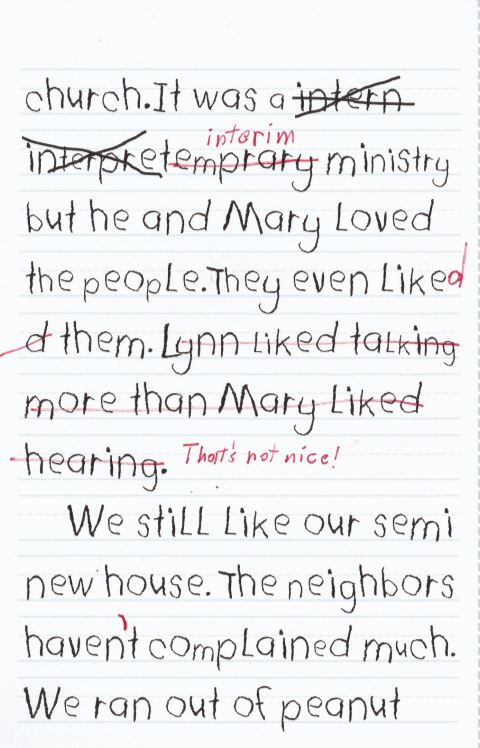 church.It was a intern
interim
interpretemprary ministry
but he and Mary Loved
the people.They even Liked
d them. Lynn Liked talking
more than Mary Liked
hearing. That's not nice!
We still Like our semi
new house. The neighbors
haven't complained much.
We ran out of peanut